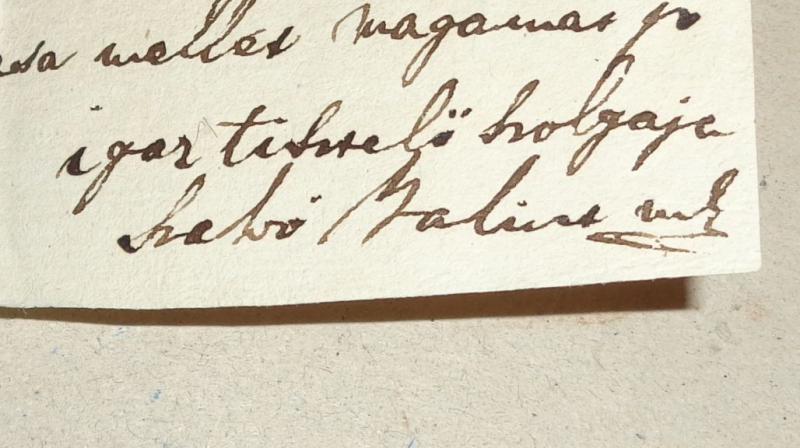 mellet magamat jo
igaz tisztelö szolgaja
Szabó Bálint mk